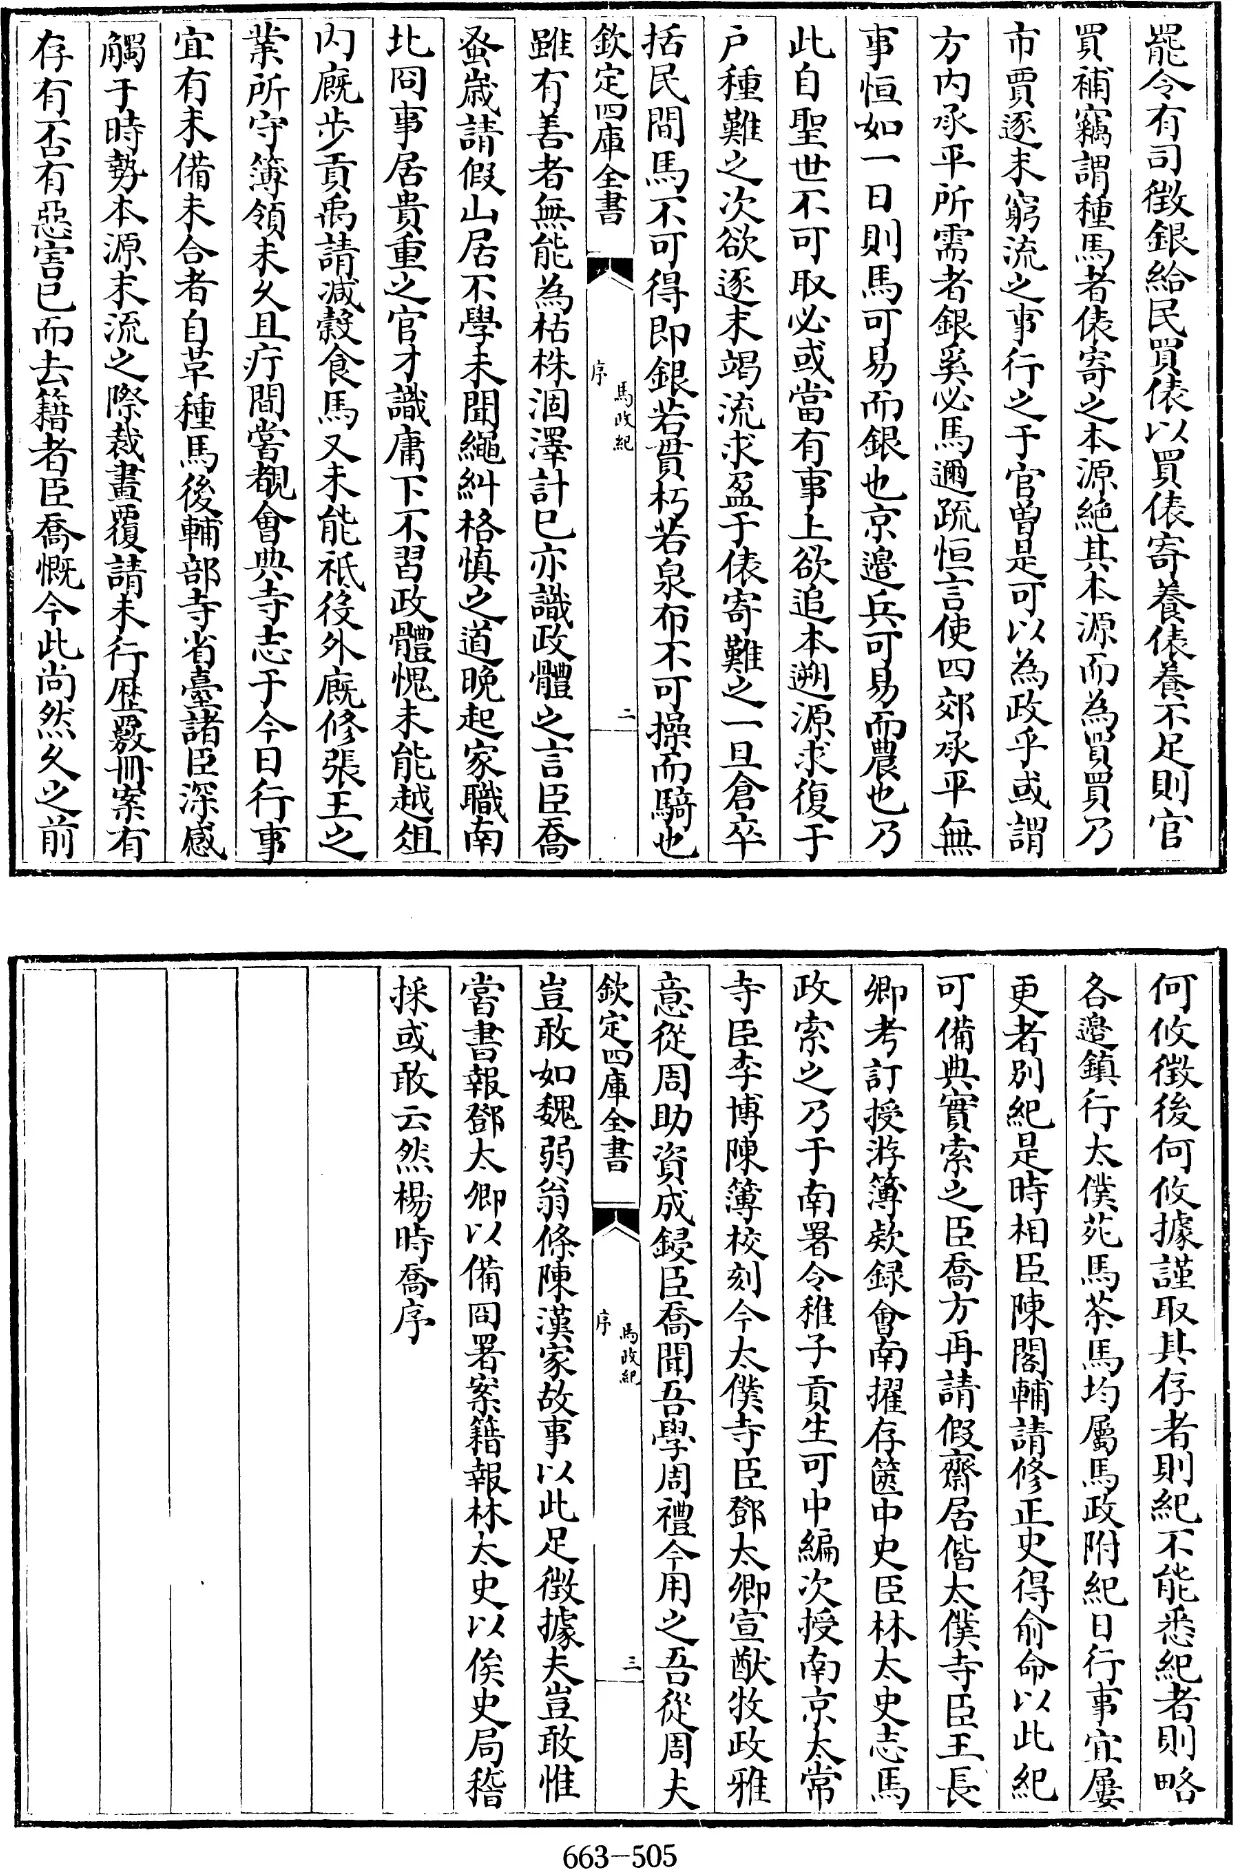 罷令有司徵銀給民買俵以買俵寄養俵養不足則官
買補竊謂種馬者俵寄之本源絶其本源而為買買乃
市賈逐末窮流之事行之于官曽是可以為政乎或謂
方内承平所需者銀奚必馬邇疏恒言使四郊承平無
事恒如一日則馬可易而銀也京邊兵可易而農也乃
此自聖世不可取必或當有事上欲追本遡源求復于
户種難之次欲逐末竭流求盈于俵寄難之一旦倉卒
括民間馬不可得即銀若貫朽若泉布不可操而騎也
欽定四庫全書
馬政紀
序
二
雖有善者無能為枯株涸澤計已亦識政體之言臣喬
蚤歳請假山居不學未聞繩糾格慎之道晩起家職南
北冏事居貴重之官才識庸下不習政體愧未能越俎
内廐步貢禹請減穀食馬又未能祇役外廐修張王之
業所守簿領未乆且疔間嘗覩會典寺志于今日行事
宜有未備未合者自草種馬後輔部寺省臺諸臣深感
觸于時勢本源末流之際裁畫覆請未行歴覈冊案有
存有否有惡害已而去籍者臣喬慨今此尚然乆之前
何攸徵後何攸據謹取其存者則紀不能悉紀者則略
各邉鎮行太僕苑馬茶馬均屬馬政附紀日行事宜屢
更者別紀是時相臣陳閣輔請修正史得俞命以此紀
可備典實索之臣喬方再請假齋居偕太僕寺臣王長
卿考訂授游簿欵録㑹南擢存篋中史臣林太史志馬
政索之乃于南署令稚子貢生可中編次授南京太常
寺臣李博陳簿校刻今太僕寺臣鄧太卿宣猷牧政雅
意從周助資成鋟臣喬聞吾學周禮今用之吾從周夫
欽定四庫全書
馬政紀
序
三
豈敢如魏弱翁條陳漢家故事以此足徵據夫豈敢惟
嘗書報鄧太卿以備冏署案籍報林太史以俟史局稽
採或敢云然楊時喬序
663-505